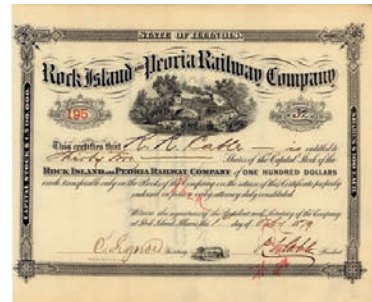 STATE OF ILLINOIS.
Rock Island and Peoria Railway Company
195
This certifies that R. R. Cable is entitled to
Shares of the Capital Stock of the
ROCK ISLAND AND PEORIA RAILWAY COMPANY of ONE HUNDRED DOLLARS
each transferable only on the Books of the Company on the return of this Certificate properly
endorsed in person or by attorney duly constituted.
Witness the signatures of the President and Secretary of the Company
at Rock Island, Illinois, this day of 1879
Secretary
President
SHARES $100 EACH